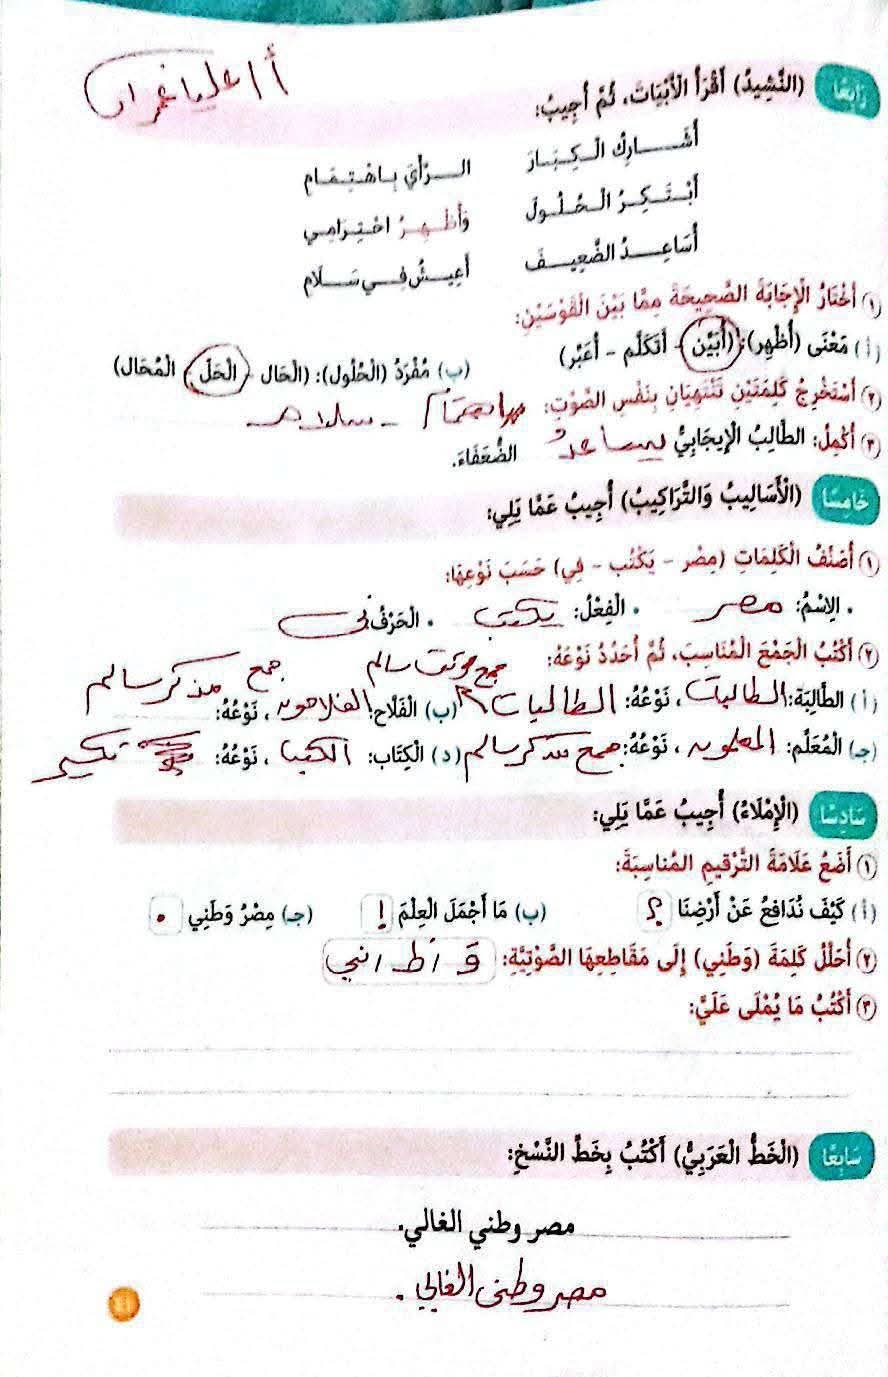 أ / عليا عمران
رَابِعًا (النَّشِيدُ) أَقْرَأُ الْأَبْيَاتَ، ثُمَّ أُجِيبُ:
أُشَـارِكُ الْـكِـبَـارَ الـرَّأْيَ بِـاهْـتِـمَـامِ
أَبْـتَـكِـرُ الْـحُـلُـولَ وَأُظْـهِـرُ احْـتِـرَامِـي
أُسَاعِـدُ الضَّعِيـفَ أَعِيـشُ فِـي سَـلَامِ
١ أَخْتَارُ الْإِجَابَةَ الصَّحِيحَةَ مِمَّا بَيْنَ الْقَوْسَيْنِ:
(أ) مَعْنَى (أُظْهِر): (أُبَيِّن - أَتَكَلَّم - أُعَبِّر) (ب) مُفْرَدُ (الْحُلُول): (الْحَال - الْحَلّ - الْمُحَال)
٢ أَسْتَخْرِجُ كَلِمَتَيْنِ تَنْتَهِيَانِ بِنَفْسِ الصَّوْتِ: باهتمام - سلام
٣ أُكْمِلُ: الطَّالِبُ الْإِيجَابِيُّ يساعدُ الضُّعَفَاءَ.
خَامِسًا (الْأَسَالِيبُ وَالتَّرَاكِيبُ) أُجِيبُ عَمَّا يَلِي:
١ أُصَنِّفُ الْكَلِمَاتِ (مِصْر - يَكْتُب - فِي) حَسَبَ نَوْعِهَا:
• الِاسْمُ: مصر • الْفِعْلُ: يكتب • الْحَرْفُ: في
٢ أَكْتُبُ الْجَمْعَ الْمُنَاسِبَ، ثُمَّ أُحَدِّدُ نَوْعَهُ: جمع مؤنث سالم جمع مذكر سالم
(أ) الطَّالِبَة: الطالبات، نَوْعُهُ: الطالبات (ب) الْفَلَّاح: الفلاحون، نَوْعُهُ:
(جـ) الْمُعَلِّم: المعلمون، نَوْعُهُ: جمع مذكر سالم (د) الْكِتَاب: الكتب، نَوْعُهُ: تكسير
سَادِسًا (الْإِمْلَاءُ) أُجِيبُ عَمَّا يَلِي:
١ أَضَعُ عَلَامَةَ التَّرْقِيمِ الْمُنَاسِبَةَ:
(أ) كَيْفَ نُدَافِعُ عَنْ أَرْضِنَا ؟ (ب) مَا أَجْمَلَ الْعِلْمَ ! (جـ) مِصْرُ وَطَنِي .
٢ أُحَلِّلُ كَلِمَةَ (وَطَنِي) إِلَى مَقَاطِعِهَا الصَّوْتِيَّةِ: وَ / طَ / ني
٣ أَكْتُبُ مَا يُمْلَى عَلَيَّ:
سَابِعًا (الْخَطُّ الْعَرَبِيُّ) أَكْتُبُ بِخَطِّ النَّسْخِ:
مصر وطني الغالي.
مصر وطنى الغالي .